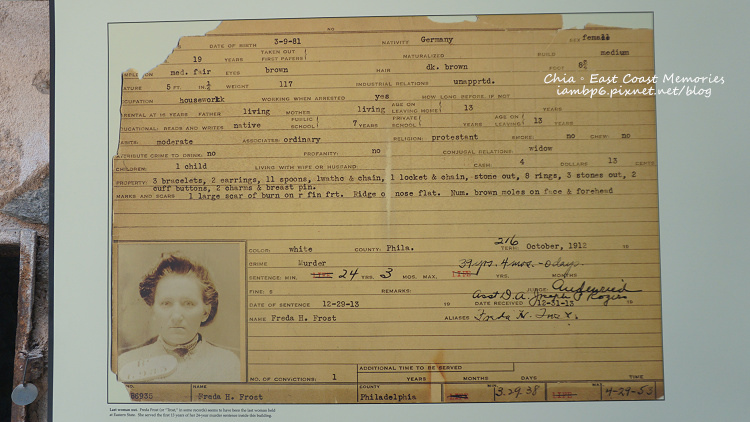 NO
DATE OF BIRTH 3-9-81 NATIVITY Germany SEX female
19 YEARS TAKEN OUT FIRST PAPERS NATURALIZED BUILD medium
med. fair EYES brown HAIR dk. brown FOOT
5 FT. WEIGHT 117 INDUSTRIAL RELATIONS unapprtd.
housework WORKING WHEN ARRESTED yes HOW LONG BEFORE, IF NOT
PARENTAL AT 16 YEARS FATHER living MOTHER living AGE ON LEAVING HOME 13 YEARS
EDUCATIONAL: READS AND WRITES native PUBLIC SCHOOL 7 YEARS PRIVATE SCHOOL YEARS AGE ON LEAVING 13 YEARS
HABITS: moderate ASSOCIATES: ordinary RELIGION: protestant SMOKE: no CHEW: no
ATTRIBUTE CRIME TO DRINK: no PROFANITY: no CONJUGAL RELATIONS: widow
CHILDREN: 1 child LIVING WITH WIFE OR HUSBAND CASH: 4 DOLLARS 13 CENTS
PROPERTY: 3 bracelets, 2 earrings, 11 spoons, 1wathc & chain, 1 locket & chain, stone out, 8 rings, 3 stones out, 2
cuff buttons, 2 charms & breast pin.
MARKS AND SCARS 1 large scar of burn on r fin frt. Ridge o nose flat. Num. brown moles on face & forehead
COLOR: white COUNTY: Phila. 216 TERM: October, 1912 19
CRIME Murder 39 yrs. 4 mos. - 0 days
SENTENCE: MIN. 24 YRS. 3 MOS. MAX. YRS. MONTHS
FINE: $ REMARKS: JUDGE: Audenried
Asst D.A. Joseph Rogers
DATE OF SENTENCE 12-29-13 19 DATE RECEIVED 12-31-13 19
NAME Freda H. Frost ALIASES
NO. OF CONVICTIONS: 1
ADDITIONAL TIME TO BE SERVED
YEARS MONTHS DAYS TIME
NO. B6935 NAME Freda H. Frost COUNTY Philadelphia MIN. 3-29-38 MAX. 4-29-53
Last woman out. Freda Frost (or "Trost," in some records) seems to have been the last woman held
at Eastern State. She served the first 15 years of her 24-year murder sentence inside this building.
Chia • East Coast Memories
iambp6.pixnet.net/blog